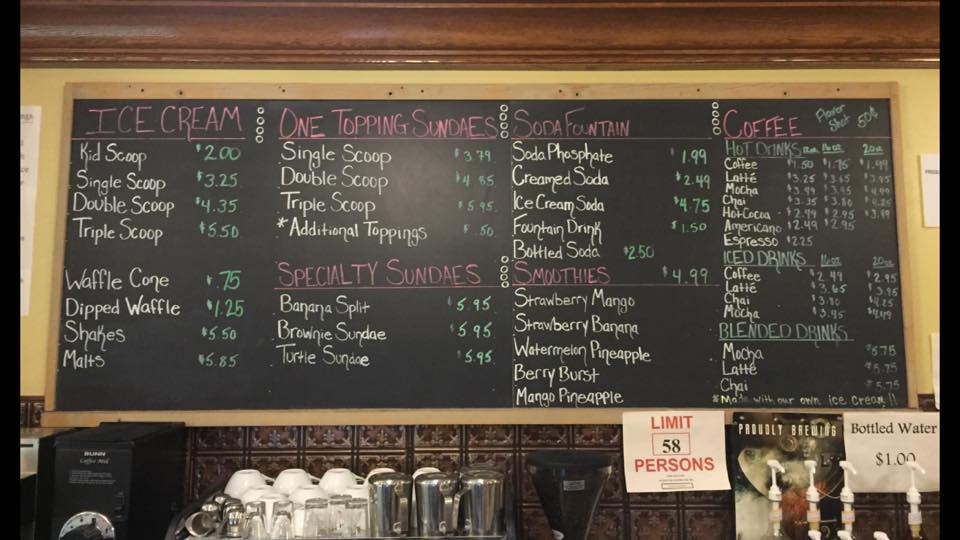 ICE CREAM
Kid Scoop $2.00
Single Scoop $3.25
Double Scoop $4.35
Triple Scoop $5.50
Waffle Cone $.75
Dipped Waffle $1.25
Shakes $5.50
Malts $5.85
ONE TOPPING SUNDAES
Single Scoop $3.79
Double Scoop $4.85
Triple Scoop $5.95
*Additional Toppings $.50
SPECIALTY SUNDAES
Banana Split $5.95
Brownie Sundae $5.95
Turtle Sundae $5.95
SODA FOUNTAIN
Soda Phosphate $1.99
Creamed Soda $2.49
Ice Cream Soda $4.75
Fountain Drink $1.50
Bottled Soda $2.50
SMOOTHIES $4.99
Strawberry Mango
Strawberry Banana
Watermelon Pineapple
Berry Burst
Mango Pineapple
COFFEE Flavor Shot 50¢
HOT DRINKS 16oz 20oz
Coffee $1.50 $1.75 $1.99
Latté $3.25 $3.65 $3.95
Mocha
Chai $3.35 $3.80 $4.25
Hot Cocoa $2.49 $2.95 $3.49
Americano $2.49 $2.95
Espresso $2.25
ICED DRINKS 16oz 20oz
Coffee $2.49 $2.95
Latté $3.65 $3.95
Chai $3.80 $4.25
Mocha $3.95 $4.49
BLENDED DRINKS
Mocha $5.75
Latté $5.75
Chai $5.75
*Made with our own ice cream!!
LIMIT
58
PERSONS
PROUDLY BREWING
Bottled Water
$1.00
BUNN
Coffee Mill